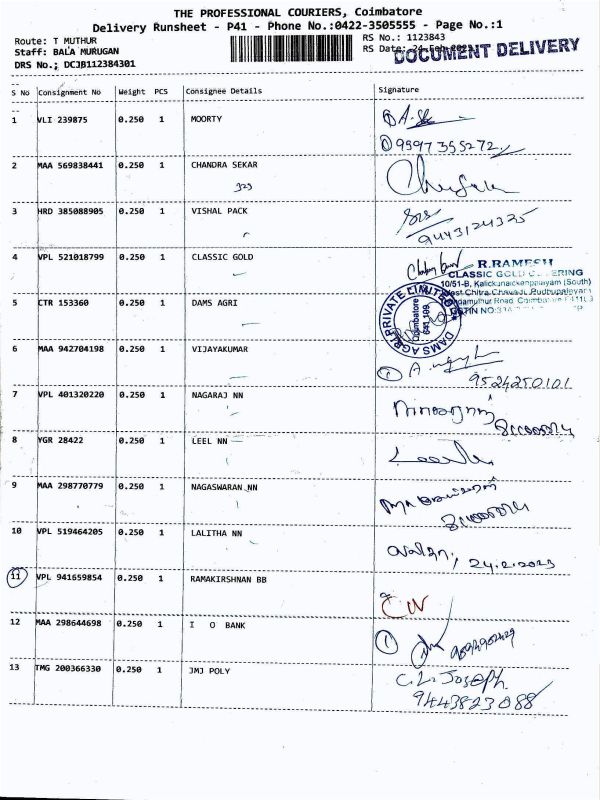 THE PROFESSIONAL COURIERS, Coimbatore
Delivery Runsheet - P41 - Phone No.:0422-3505555 - Page No.:1
Route: T MUTHUR
RS No.: 1123843
Staff: BALA MURUGAN
RS Date: 24-Feb-2023
DOCUMENT DELIVERY
DRS No.; DCJB112384301
S No Consignment No Weight PCS Consignee Details Signature
1 VLI 239875 0.250 1 MOORTY
9597355272
2 MAA 569838441 0.250 1 CHANDRA SEKAR
3 HRD 385088905 0.250 1 VISHAL PACK
9443124325
4 VPL 521018799 0.250 1 CLASSIC GOLD
R.RAMESH
CLASSIC GOLD
10/51-B, Kalickunaickenpalayam (South)
5 CTR 153360 0.250 1 DAMS AGRI
DAMS AGRI PRIVATE LIMITED
Coimbatore
641 109
6 MAA 942704198 0.250 1 VIJAYAKUMAR
9524250101
7 VPL 401320220 0.250 1 NAGARAJ NN
8 YGR 28422 0.250 1 LEEL NN
9 MAA 298770779 0.250 1 NAGASWARAN NN
10 VPL 519464205 0.250 1 LALITHA NN
லலிதா, 24.2.2023
11 VPL 941659854 0.250 1 RAMAKIRSHNAN BB
12 MAA 298644698 0.250 1 I O BANK
13 TMG 200366330 0.250 1 JMJ POLY
C.L. Joseph
9443823088